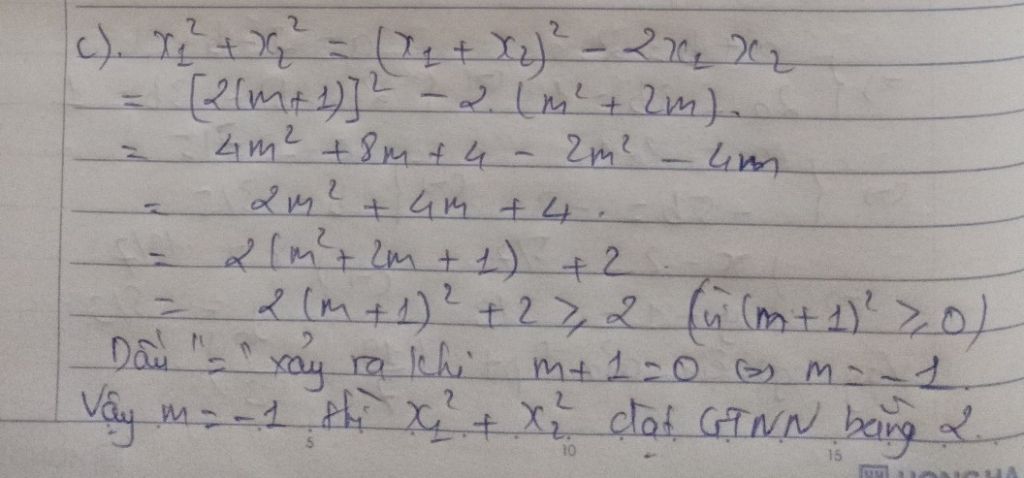 c). x₁² + x₂² = (x₁ + x₂)² - 2x₁ x₂
= [2(m+1)]² - 2. (m² + 2m).
= 4m² + 8m + 4 - 2m² - 4m
= 2m² + 4m + 4.
= 2(m² + 2m + 1) + 2
= 2(m+1)² + 2 ≥ 2 (vì (m+1)² ≥ 0)
Dấu "=" xảy ra khi m+1=0 ⇔ m = -1
Vậy m = -1 thì x₁² + x₂² đạt GTNN bằng 2.
5 10 15
HONG HA